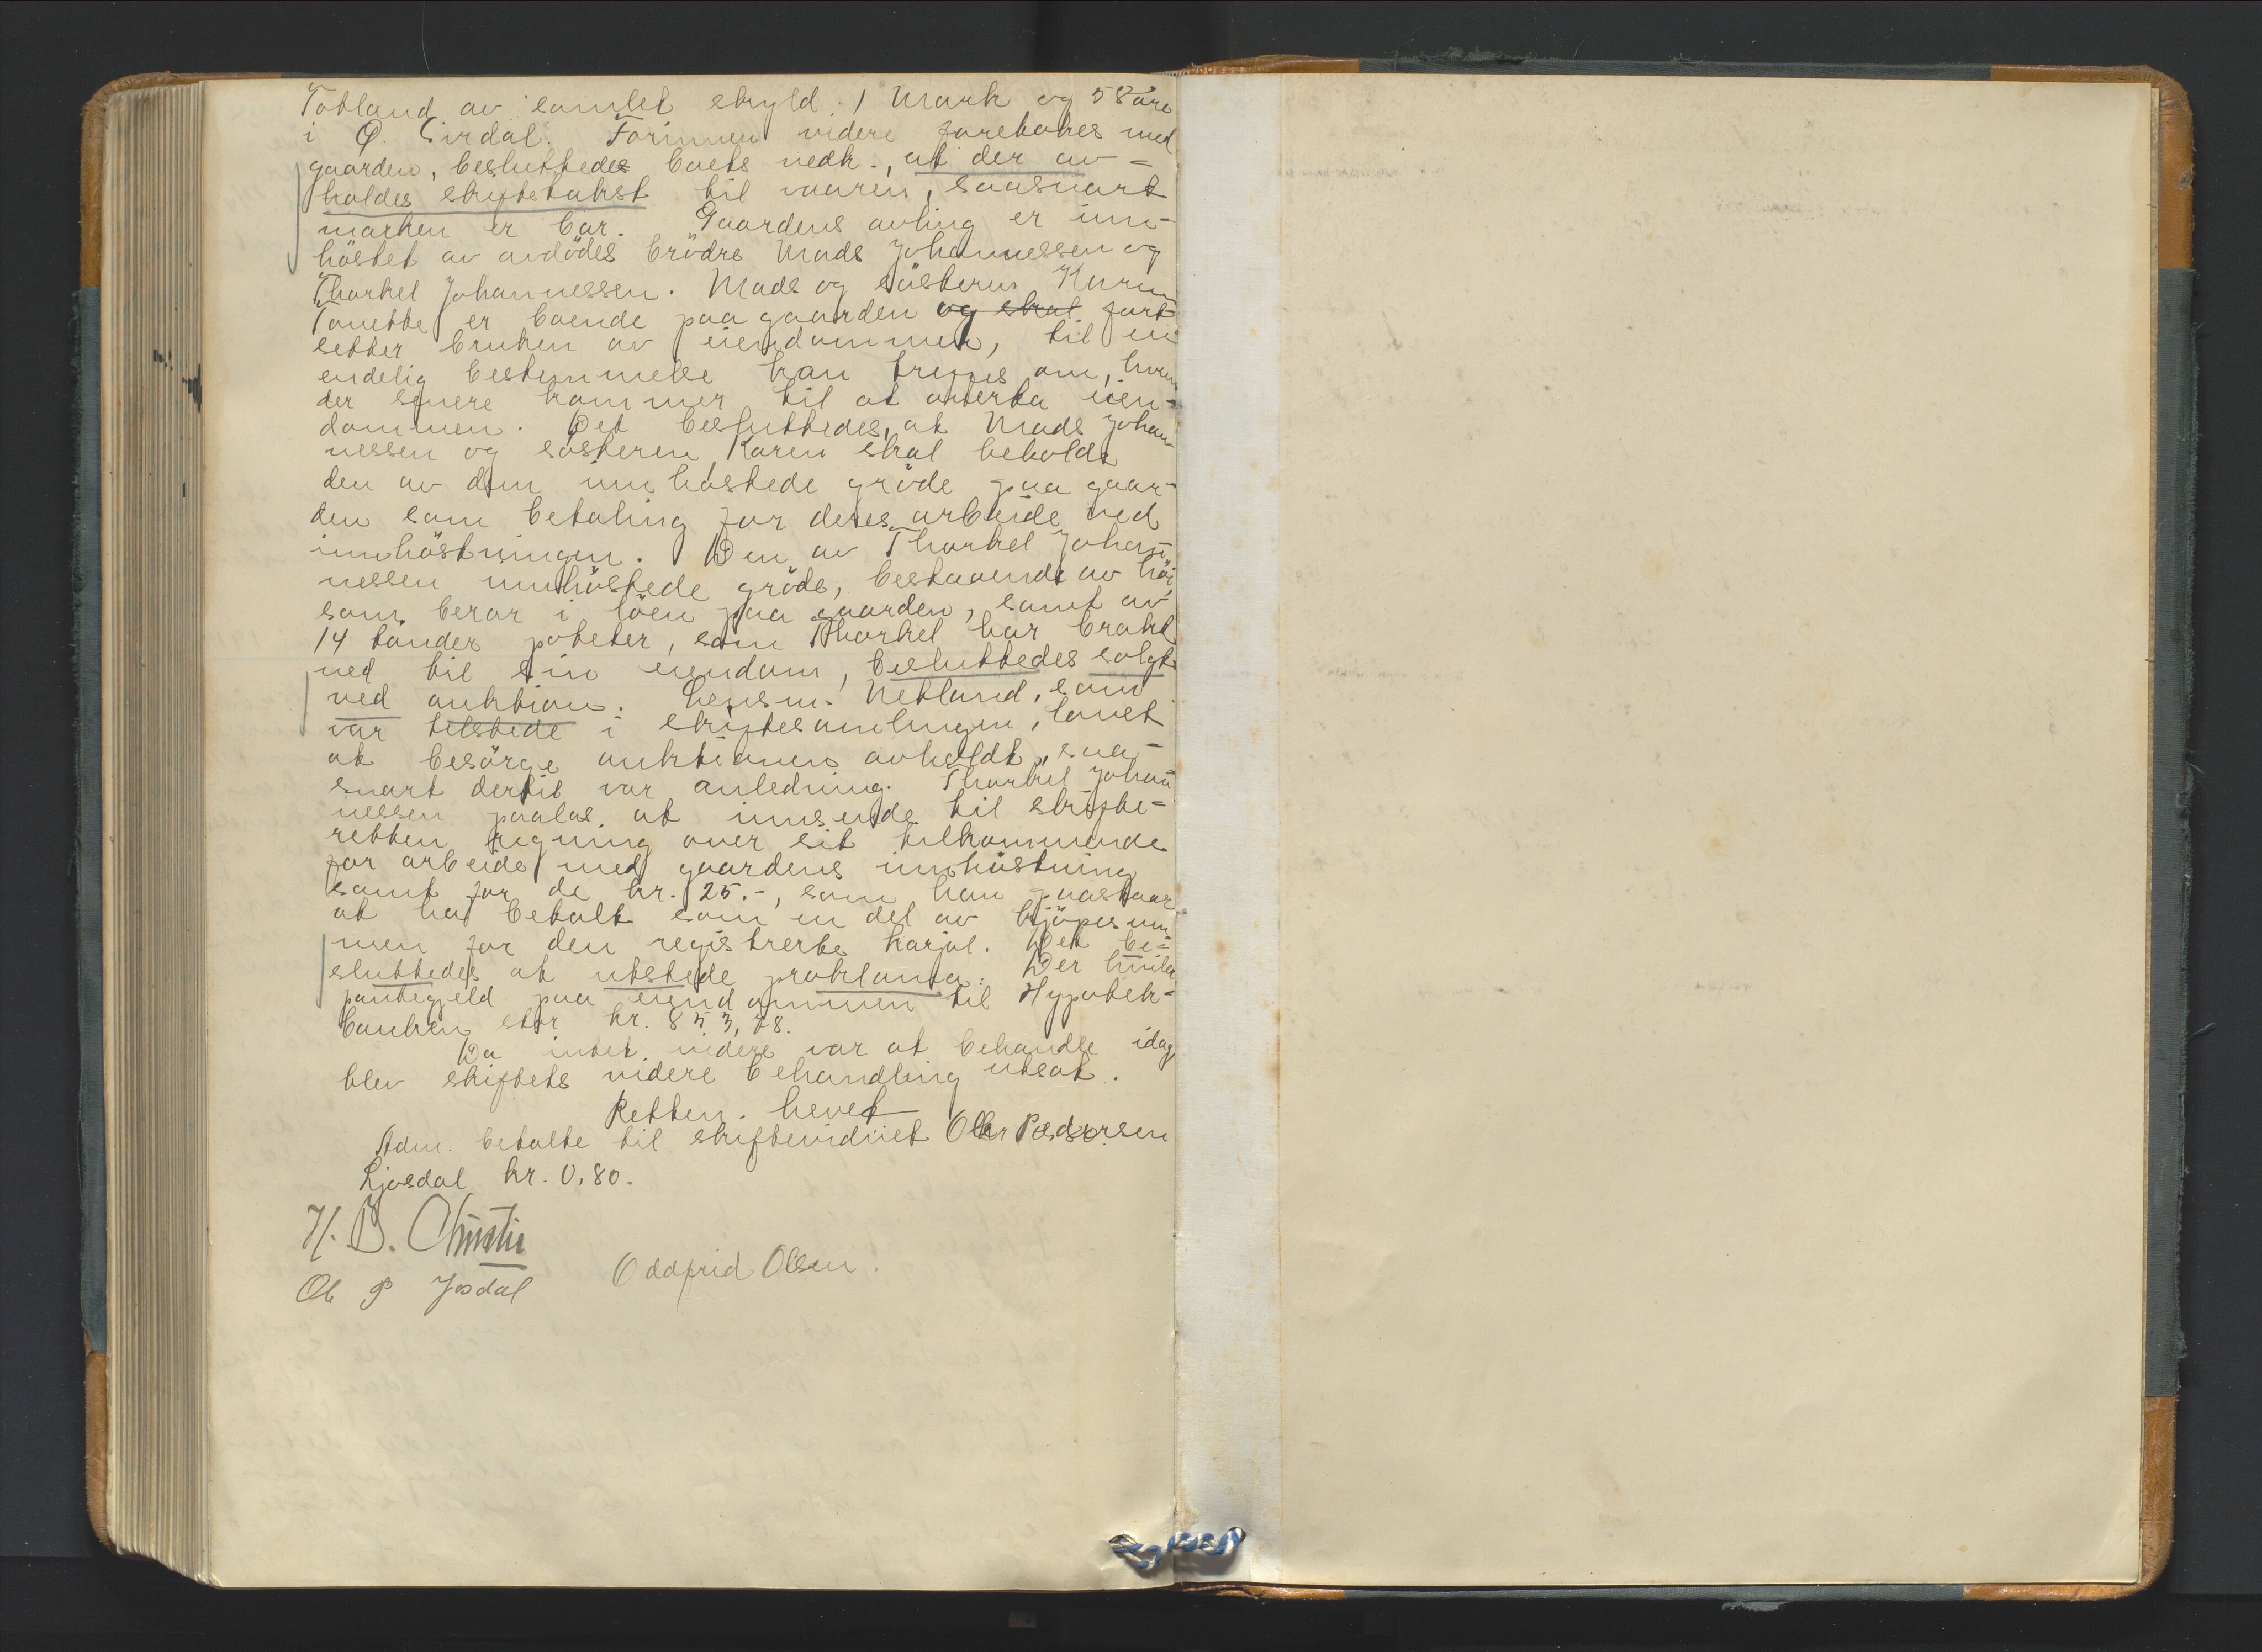 Totland av samlet skyld 1 Mark og 58 øre
i Ø. Sirdal. Forinnen videre foretakes med
gaarden, besluttedes boets vedk., at der av-
holdes skiftetakst til vaaren, saasnart
marken er bar. Gaardens avling er inn-
höstet av avdödes brödre Mads Johannessen og
Thorkel Johannessen. Mads og sösteren Karen
Tonette er boende paa gaarden og skal fort
setter bruken av eiendommen, til en
endelig bestemmelse kan treffes om, hvem
der senere kommer til at overta eien-
dommen. Det besluttedes, at Mads Johan-
nessen og sösteren Karen skal beholde
den av dem innhöstede gröde paa gaar-
den som betaling for deres arbeide ved
innhöstningen. Den av Thorkel Johan-
nessen innhöstede gröde, bestaaende av höi,
som beror i löen paa gaarden, samt av
14 tönder poteter, som Thorkel har brakt
ned til sin eiendom, besluttedes solgt
ved auktion. Lensm. Netland, som
var tilstede i skiftesamlingen, lovet
at besörge auktionen avholdt, saa-
snart dertil var anledning. Thorkel Johan
nessen paalas at innsende til skifte-
retten regning over sit tilkommende
for arbeide med gaardens innhöstning
samt for de kr. 25.-, som han paastaar
at ha betalt som en del av kjöpesum
men for den registrerte karjol. Det be-
sluttedes at utstede proklama. Der hviler
pantegjeld paa eiendommen til Hypotek-
banken stor kr. 853,78.
Da intet videre var at behandle idag,
blev skiftets videre behandling utsat.
Retten hevet
Adm. betalte til skiftevidnet Ole Pedersen
Ljosdal kr. 0,80.
H. B. Christie
Ole P Josdal Oddfrid Olsen.